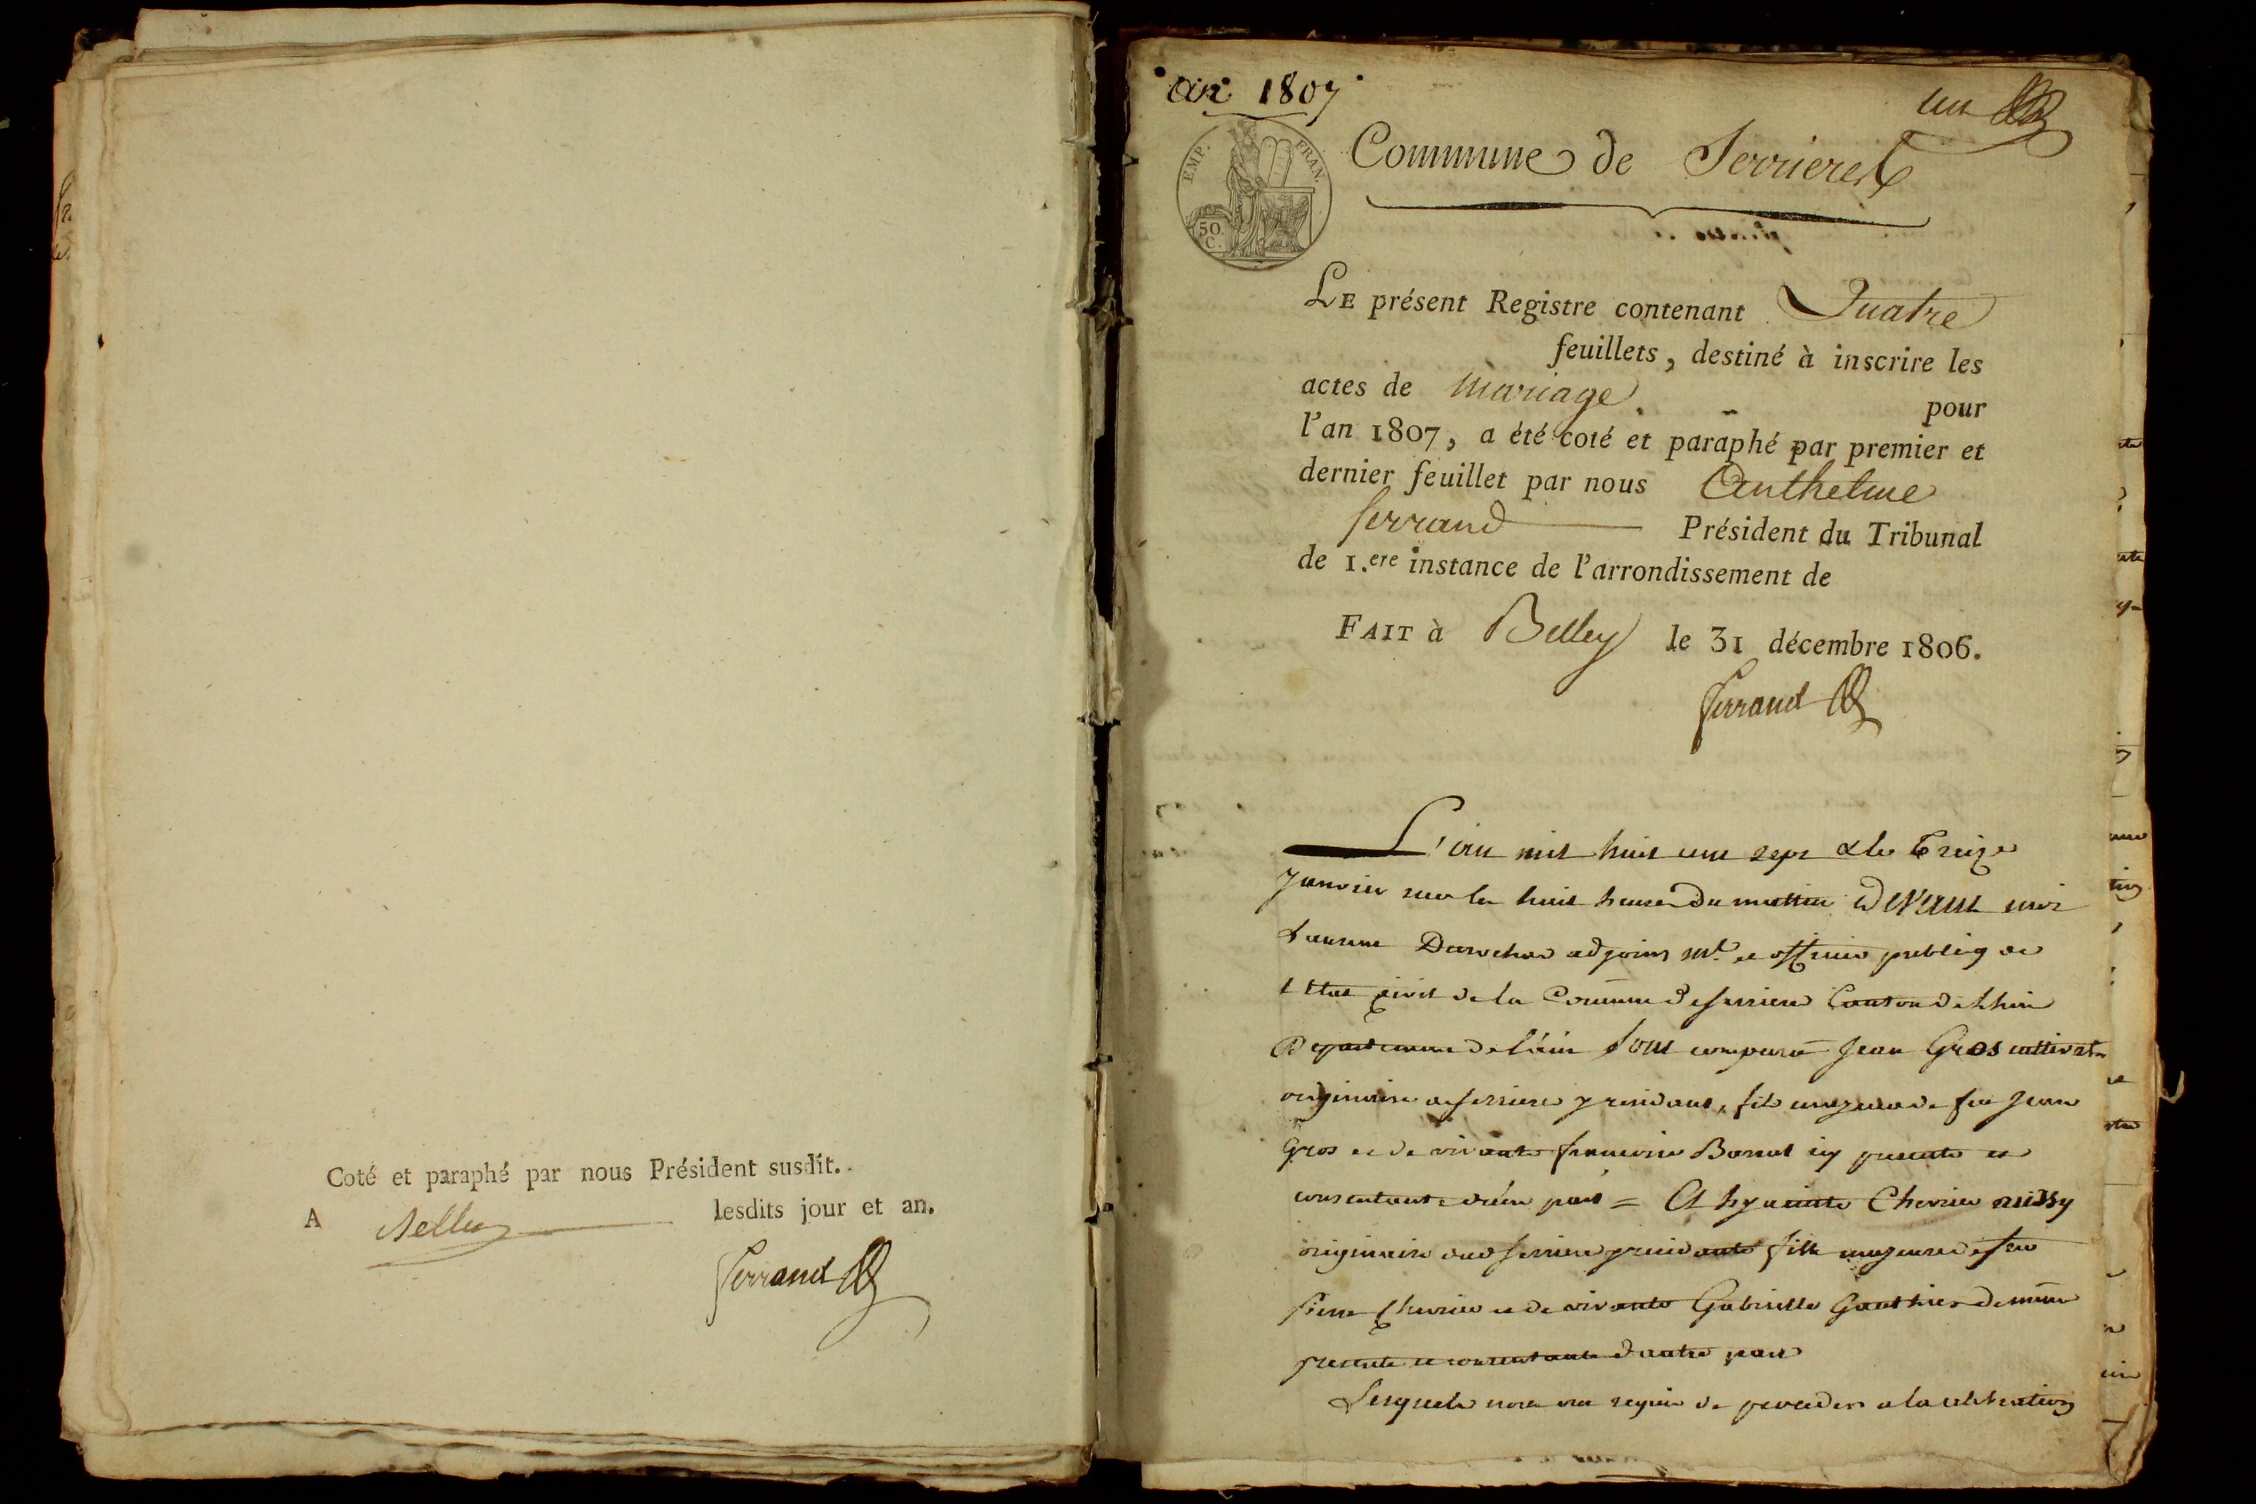 Coté et paraphé par nous Président susdit.
A Belley lesdits jour et an.
Ferrand
an 1807
un
EMP. FRAN.
50 C.
Commune de Serrieres
LE présent Registre contenant Quatre
feuillets, destiné à inscrire les
actes de mariage pour
l'an 1807, a été coté et paraphé par premier et
dernier feuillet par nous Anthelme
ferrand Président du Tribunal
de 1.ere instance de l'arrondissement de
FAIT à Belley le 31 décembre 1806.
Ferrand
L'an mil huit cent sept & le Treize
Janvier sur les huit heures du mattin Devant moi
adjoint m.l et officier publiq de
l Etat civil de la Commune de serriere Canton de Lhui
Departement de l'ain sont comparu Jean Gros cultivatr
originaire de serriere y residant, fils majeur de feu Jean
Gros et de vivante francoise Bonnat icy presente et
consentante d'une part = Et hyacinte Chevrier aussy
originaire dud serriere y residante fille majeure de feu
pierre Chevrier et de vivante Gabrielle Gauthier de meme
presente et consentante d'autre part
Lesquels nous ont requis de proceder a la celebration